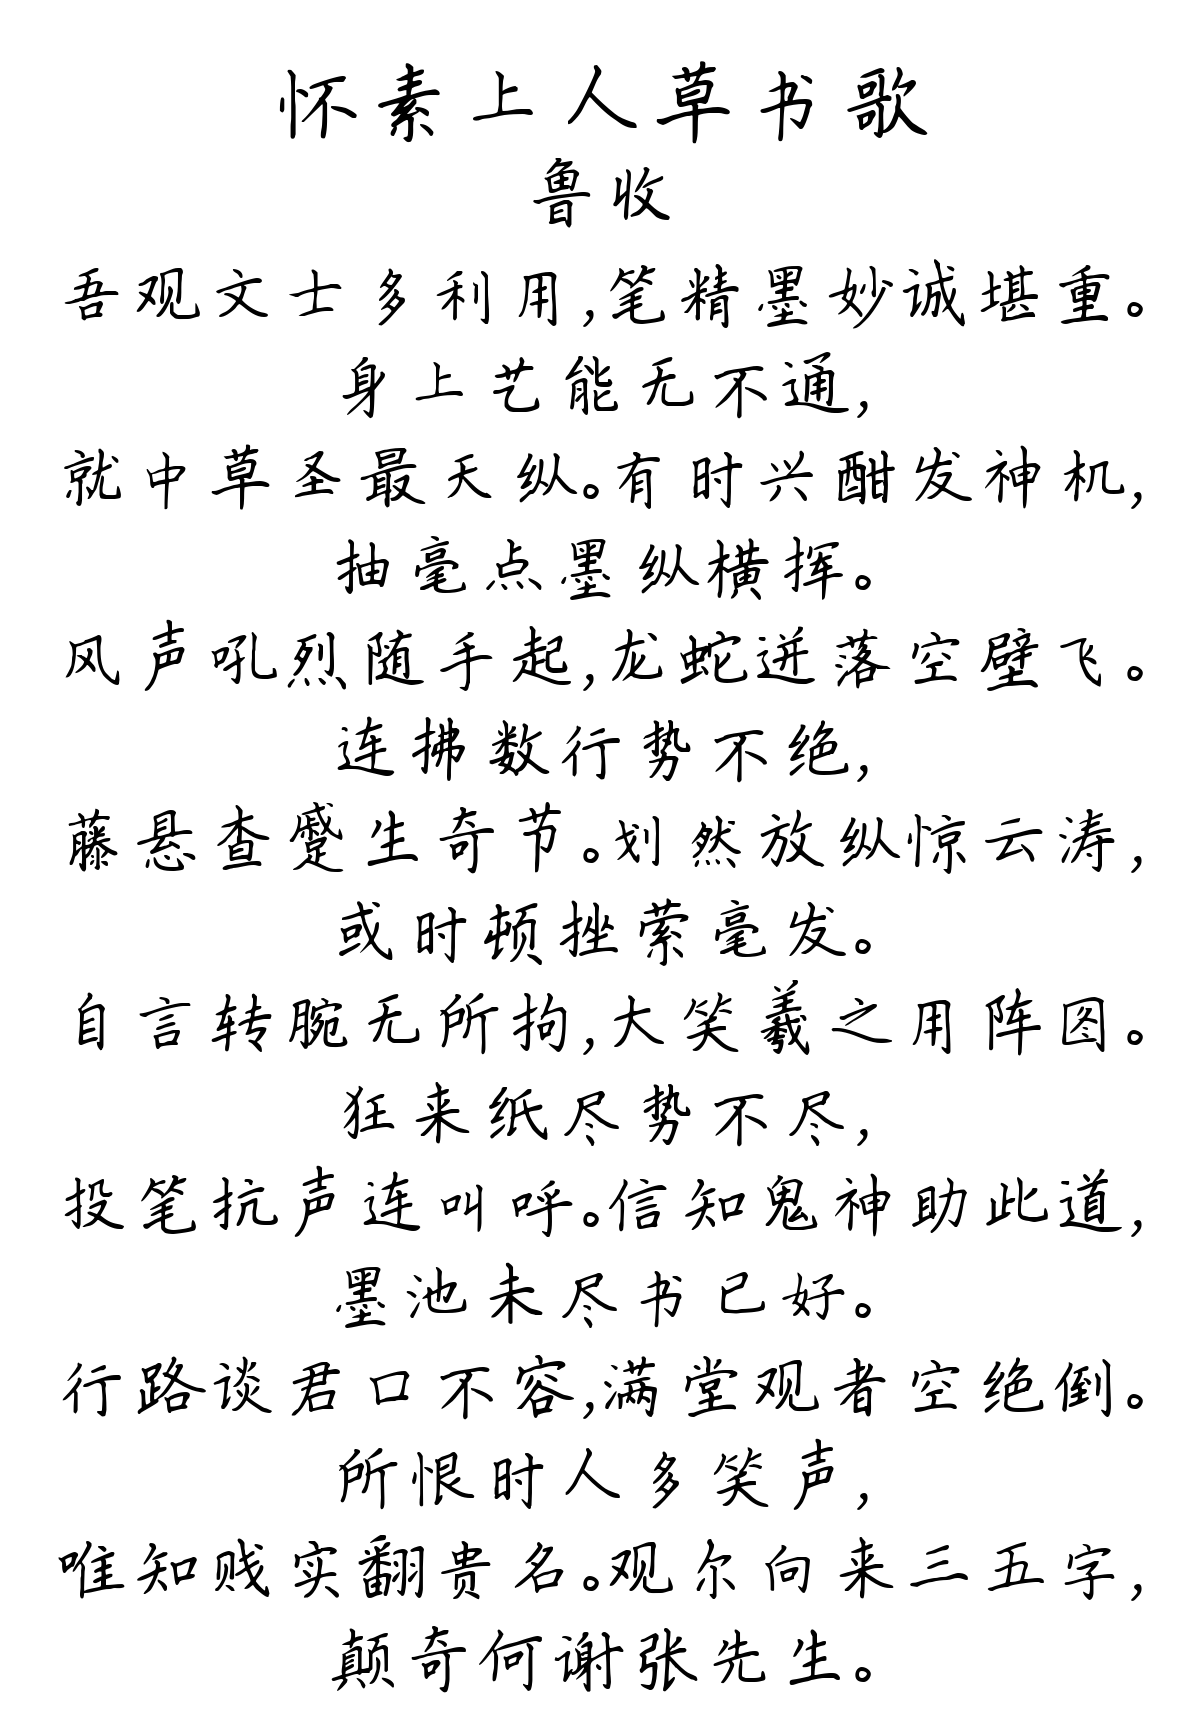 怀素上人草书歌
鲁收
吾观文士多利用,笔精墨妙诚堪重。
身上艺能无不通,
就中草圣最天纵。有时兴酣发神机,
抽毫点墨纵横挥。
风声吼烈随手起,龙蛇迸落空壁飞。
连拂数行势不绝,
藤悬查蹙生奇节。划然放纵惊云涛,
或时顿挫萦毫发。
自言转腕无所拘,大笑羲之用阵图。
狂来纸尽势不尽,
投笔抗声连叫呼。信知鬼神助此道,
墨池未尽书已好。
行路谈君口不容,满堂观者空绝倒。
所恨时人多笑声,
唯知贱实翻贵名。观尔向来三五字,
颠奇何谢张先生。